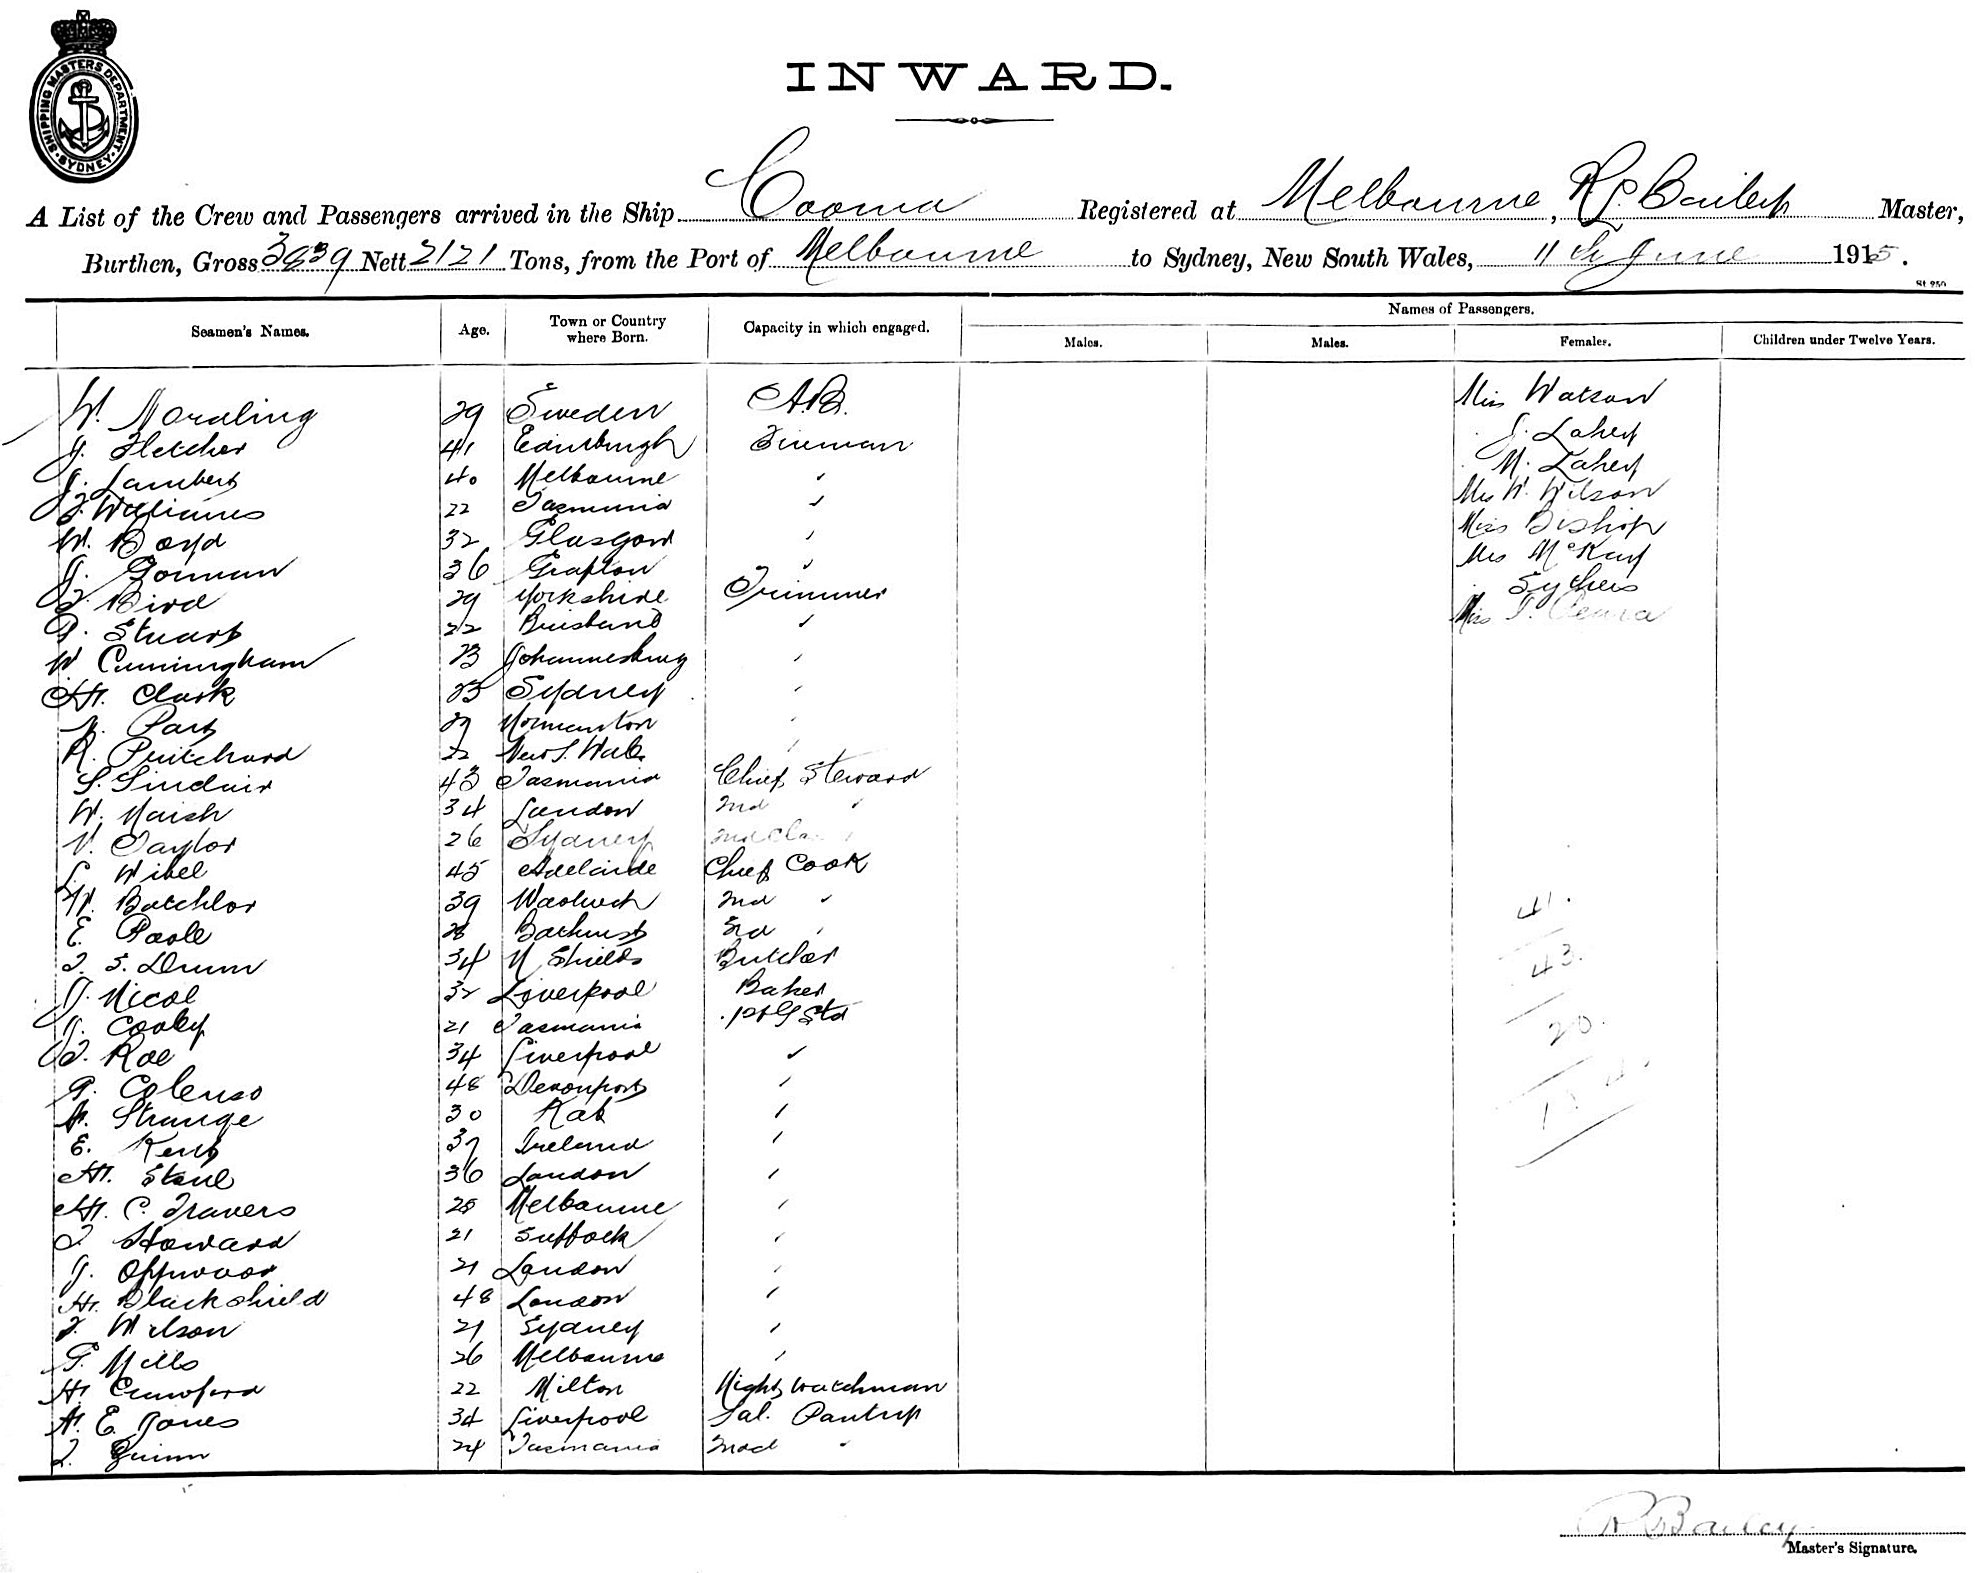 SHIPPING MASTERS DEPARTMENT. SYDNEY.
INWARD.
A List of the Crew and Passengers arrived in the Ship Cooma Registered at Melbourne, Bailey Master,
Burthen, Gross 3839 Nett 2121 Tons, from the Port of Melbourne to Sydney, New South Wales, 11th June 1915.
Seamen's Names. Age. Town or Country where Born. Capacity in which engaged. Names of Passengers.
Males. Males. Females. Children under Twelve Years.
W. Nordling 29 Sweden A.B. Miss Watson
J. Fletcher 41 Edinburgh Fireman " J. Lahey
J. Lambert 40 Melbourne " " M. Lahey
Williams 22 Tasmania " Mrs W. Wilson
W. Boyd 32 Glasgow " Miss Bishop
J. Gorman 36 Grafton " Mrs McKay
Bird 29 Yorkshire Trimmer "
Stuart 22 Brisbane " Miss
W Cunningham 23 Johannesburg "
H. Clark 25 Sydney "
Part 29 Normanton "
R. Pritchard 22 New S. Wales "
S. Sinclair 43 Tasmania Chief Steward
W. Naish 34 London 2nd "
V. Taylor 26 Sydney 2nd Class "
Wibel 45 Adelaide Chief Cook
W. Batchlor 39 Woolwich 2nd " 41.
E. Poole 28 Bathurst 3rd "
S. Drum 34 N Shields Butcher 43.
J. Nicol 32 Liverpool Baker
J. Cooley 21 Tasmania Std 20.
Roe 34 Liverpool "
Colenso 48 Devonport "
A. Strange 30 "
E. Kent 37 Ireland "
H. Stene 36 London "
H. C. Travers 28 Melbourne "
Howard 21 Suffock "
J. 21 London "
H. Blackshield 48 London "
Wilson 21 Sydney "
Mills 26 Melbourne "
H. Crawford 22 Milton Night Watchman
A. E. Jones 34 Liverpool Sal. Pantry
Quinn 24 Tasmania 2nd "
R Bailey
Master's Signature.